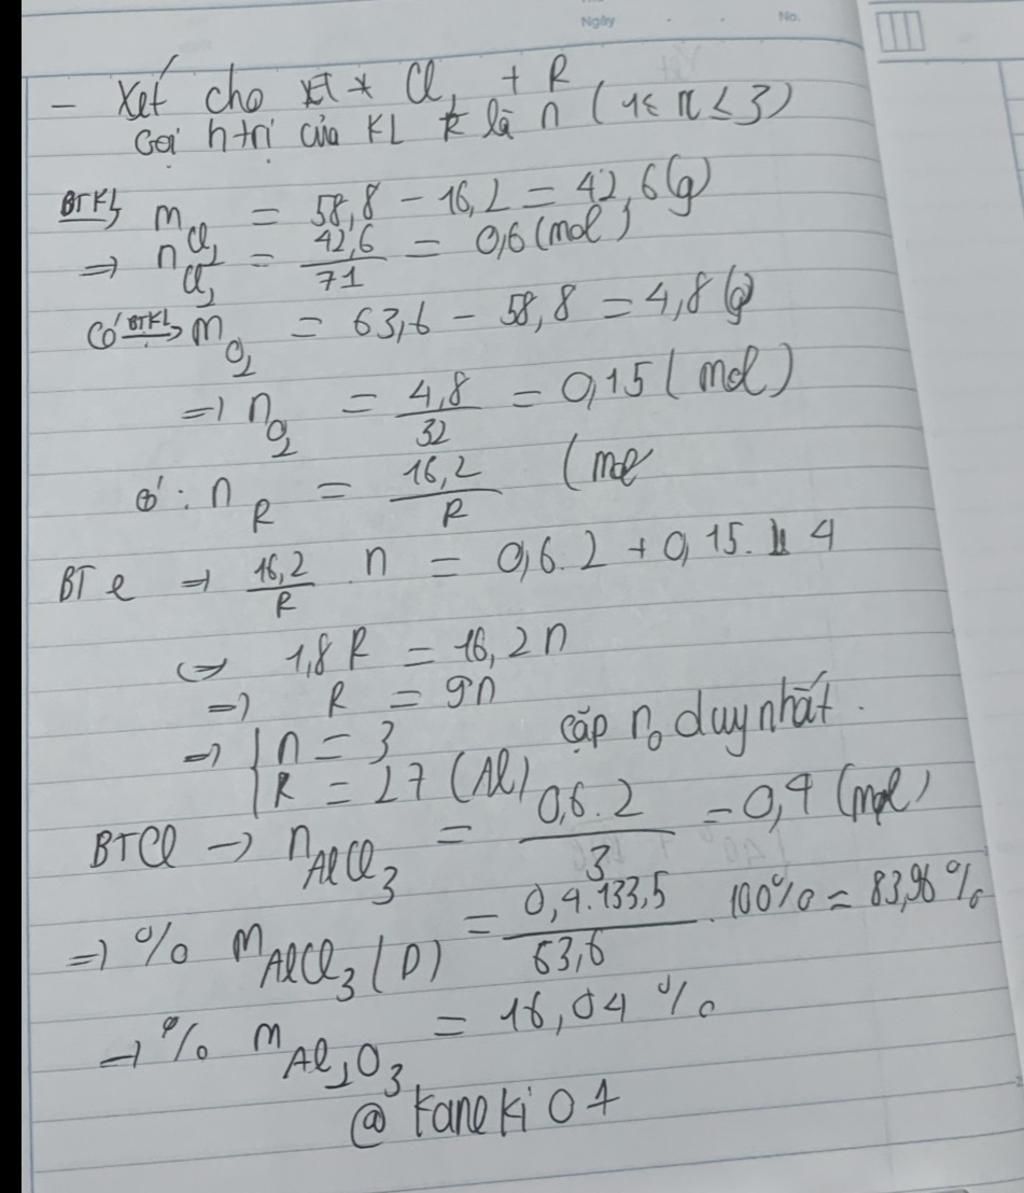 Ngày No.
- Xét cho Cl₂ + R
Gọi htrị của KL R là n (1 ≤ n ≤ 3)
BTKL→ m Cl₂ = 58,8 - 16,2 = 42,6 (g)
⇒ n Cl₂ = 42,6/71 = 0,6 (mol)
Có BTKL→ m O₂ = 63,6 - 58,8 = 4,8 (g)
⇒ n O₂ = 4,8/32 = 0,15 (mol)
Có: n R = 16,2/R (mol
BT e ⇒ 16,2/R . n = 0,6.2 + 0,15. 4
⇔ 1,8 R = 16,2 n
⇒ R = 9n
⇒ { n = 3 cặp n₀ duy nhất.
R = 27 (Al)
BTCl → n AlCl₃ = 0,6.2/3 = 0,4 (mol)
⇒ % m AlCl₃ (D) = 0,4.133,5/63,6 . 100% = 83,96%
→ % m Al₂O₃ = 16,04 %
@ Kaneki 04